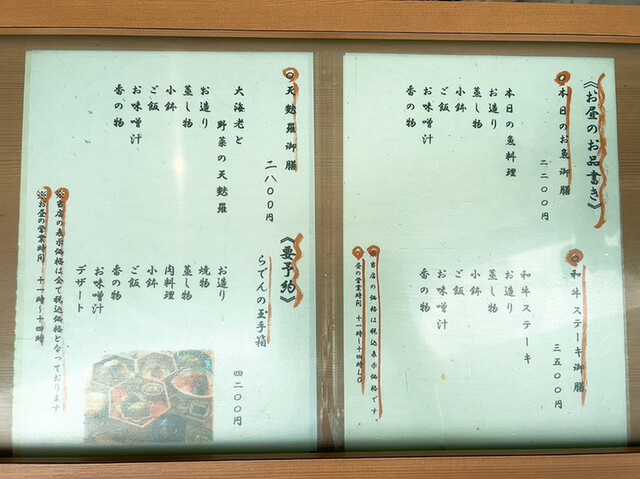 《お昼のお品書き》
○本日のお魚御膳
二二〇〇円
本日の魚料理
お造り
蒸し物
小鉢
ご飯
お味噌汁
香の物
○和牛ステーキ御膳
三五〇〇円
和牛ステーキ
お造り
蒸し物
小鉢
ご飯
お味噌汁
香の物
※当店の価格は税込表示価格です。
※昼の営業時間 十一時〜十四時LO
○天麩羅御膳
二八〇〇円
大海老と
野菜の天麩羅
お造り
蒸し物
小鉢
ご飯
お味噌汁
香の物
《要予約》
らでんの玉手箱
四二〇〇円
お造り
焼物
蒸し物
肉料理
小鉢
ご飯
香の物
お味噌汁
デザート
※当店の表示価格は全て税込価格となっております
※お昼の営業時間 十一時〜十四時